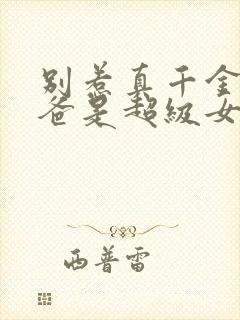 别惹真千金
爸是超级女
西普雷